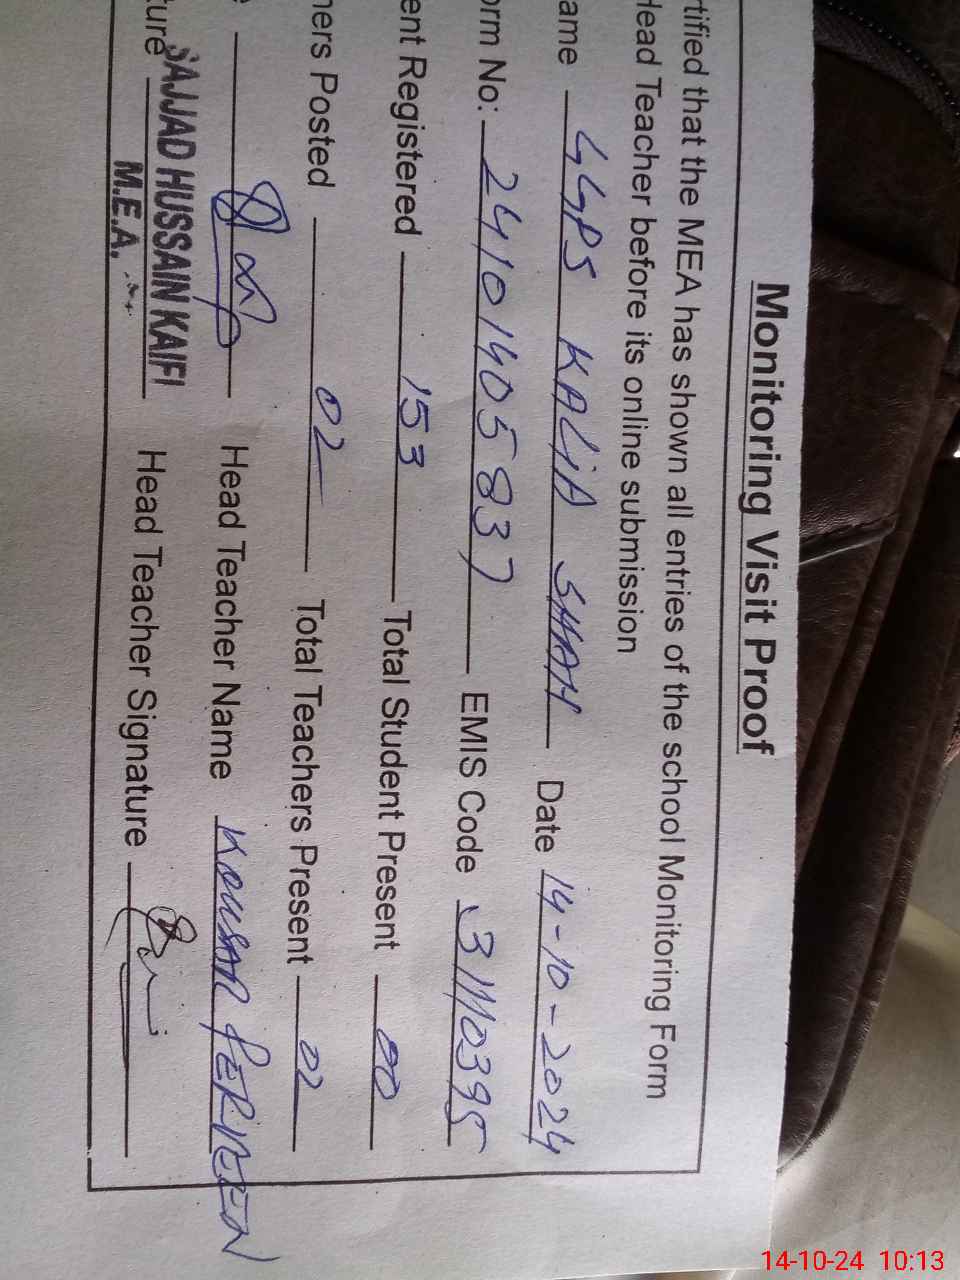 Monitoring Visit Proof
rtified that the MEA has shown all entries of the school Monitoring Form
Head Teacher before its online submission
ame GGPS KALIA SHAH Date 14-10-2024
orm No: 24101405837 EMIS Code 31110395
ent Registered 153 Total Student Present 00
hers Posted 02 Total Teachers Present 02
Head Teacher Name KOUSAR PERVEEN
ture SAJJAD HUSSAIN KAIFI Head Teacher Signature
M.E.A.
14-10-24 10:13